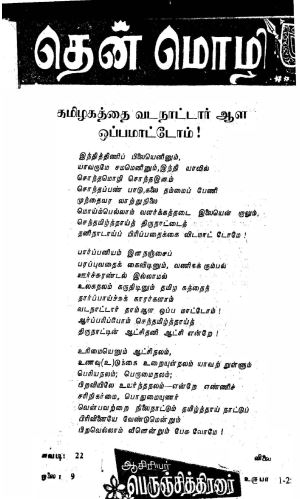 தென் மொழி
தமிழகத்தை வடநாட்டார் ஆள
ஒப்பமாட்டோம் !
இந்தித்திணிப் பிலையெனினும்,
யாவருமே சமமெனினும், இந்தி யாவில்
சொந்தமொழி சொந்தஇனம்
சொந்தப்பண் பாடு,கலை தம்மைப் பேணி
முந்தைவர லாற்றுநிலை
மொய்ம்பெல்லாம் வளர்க்கத்தடை இலையென் றாலும்,
செந்தமிழ்த்தாய்த் திருநாட்டைத்
தனிநாடாய்ப் பிரிப்பதைக்கை விடமாட் டோமே !
பார்ப்பனியம் இனநஞ்சைப்
பரப்புவதைக் கைவிடினும், வணிகக் கும்பல்
ஊர்ச்சுரண்டல் இல்லாமல்
உலகநலம் கருதிடினும் தமிழ கத்தைத்
தார்ப்பாய்ச்சுக் காரர்களாம்
வடநாட்டார் தாம்ஆள ஒப்ப மாட்டோம் !
ஆர்ப்பரிப்போம் செந்தமிழ்த்தாய்த்
திருநாட்டின் ஆட்சிதனி ஆட்சி என்றே !
உரிமையெனும் ஆட்சிநலம்,
உணவு(உ)டுக்கை உறையுள்நலம் யாவற் றுள்ளும்
பெரியநலம்; பெருமைநலம்;
பிறவியிலே உயர்ந்தநலம்—என்றே எண்ணிச்
சரிநிகர்மை, பொதுமையுணர்
வென்பவற்றை நிலைநாட்டும் தமிழ்த்தாய் நாட்டுப்
பிரிவினையே வேண்டுமென்றும்
பிறவெல்லாம் வீணென்றும் பேசு வோமே !
சுவடி: 22
விலை
ஓலை: 9
உருபா 1-2
ஆசிரியர்
பெருஞ்சித்திரனார்